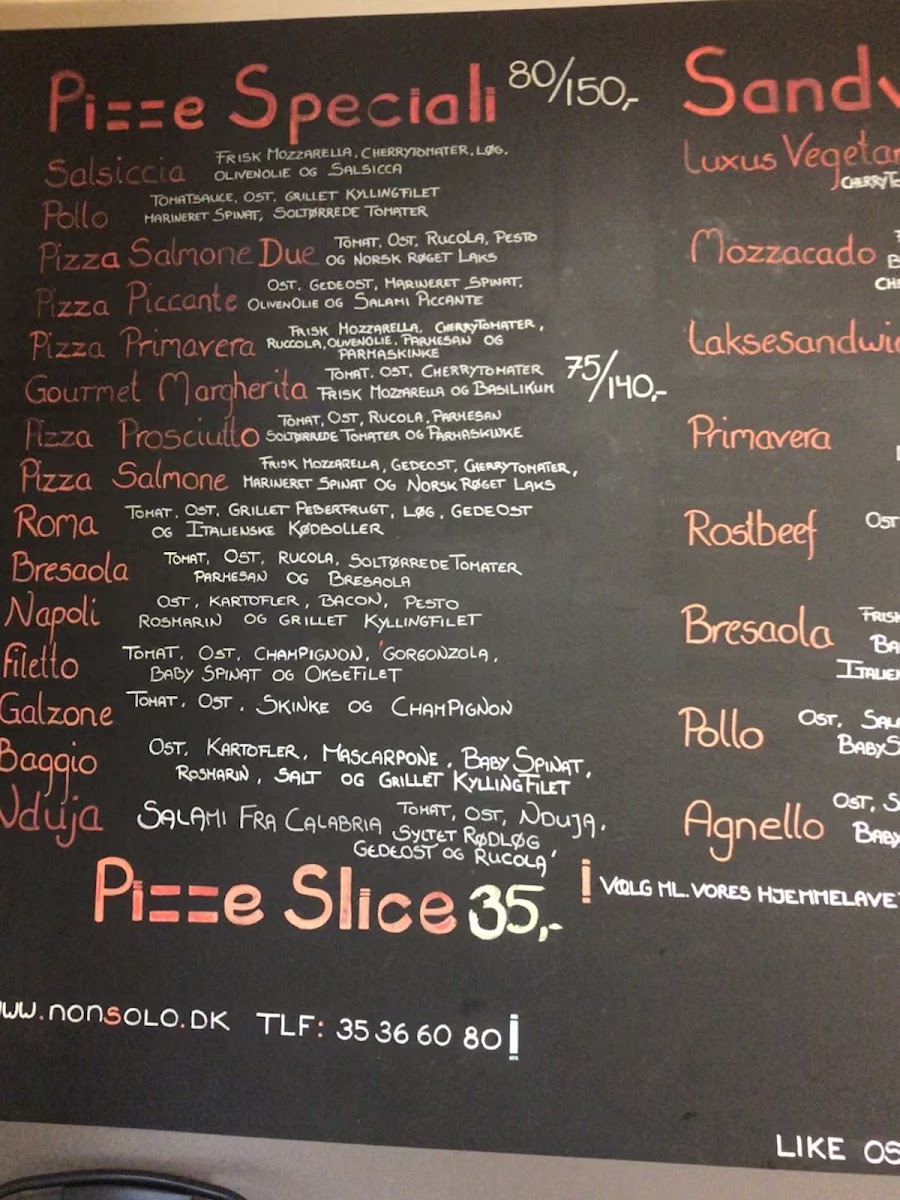 Pizze Speciali 80/150,-
Salsiccia FRISK MOZZARELLA, CHERRYTOMATER, LØG,
OLIVENOLIE OG SALSICCA
Pollo TOMATSAUCE, OST, GRILLET KYLLINGFILET
MARINERET SPINAT, SOLTØRREDE TOMATER
Pizza Salmone Due TOMAT, OST, RUCOLA, PESTO
OG NORSK RØGET LAKS
Pizza Piccante OST, GEDEOST, MARINERET SPINAT,
OLIVENOLIE OG SALAMI PICCANTE
Pizza Primavera FRISK MOZZARELLA, CHERRYTOMATER,
RUCCOLA, OLIVENOLIE, PARMESAN OG
PARMASKINKE
Gourmet Margherita TOMAT, OST, CHERRYTOMATER
FRISK MOZZARELLA OG BASILIKUM 75/140,-
Pizza Prosciutto TOMAT, OST, RUCOLA, PARMESAN
SOLTØRREDE TOMATER OG PARMASKINKE
Pizza Salmone FRISK MOZZARELLA, GEDEOST, CHERRYTOMATER,
MARINERET SPINAT OG NORSK RØGET LAKS
Roma TOMAT, OST, GRILLET PEBERFRUGT, LØG, GEDEOST
OG ITALIENSKE KØDBOLLER
Bresaola TOMAT, OST, RUCOLA, SOLTØRREDE TOMATER
PARMESAN OG BRESAOLA
Napoli OST, KARTOFLER, BACON, PESTO
ROSMARIN OG GRILLET KYLLINGFILET
Filetto TOMAT, OST, CHAMPIGNON, GORGONZOLA,
BABY SPINAT OG OKSEFILET
Galzone TOMAT, OST, SKINKE OG CHAMPIGNON
Baggio OST, KARTOFLER, MASCARPONE, BABY SPINAT,
ROSMARIN, SALT OG GRILLET KYLLINGFILET
Nduja SALAMI FRA CALABRIA TOMAT, OST, NDUJA,
SYLTET RØDLØG
GEDEOST OG RUCOLA
Pizze Slice 35,-
WWW.NONSOLO.DK TLF: 35 36 60 80
Sandw
Luxus Vegetar
CHERRYTO
Mozzacado
B
CHE
Laksesandwic
Primavera
Rostbeef OST
Bresaola FRISK
BA
ITALIEN
Pollo OST, SALA
BABYS
Agnello OST, S
BABY
! VÆLG ML. VORES HJEMMELAVET
LIKE OS